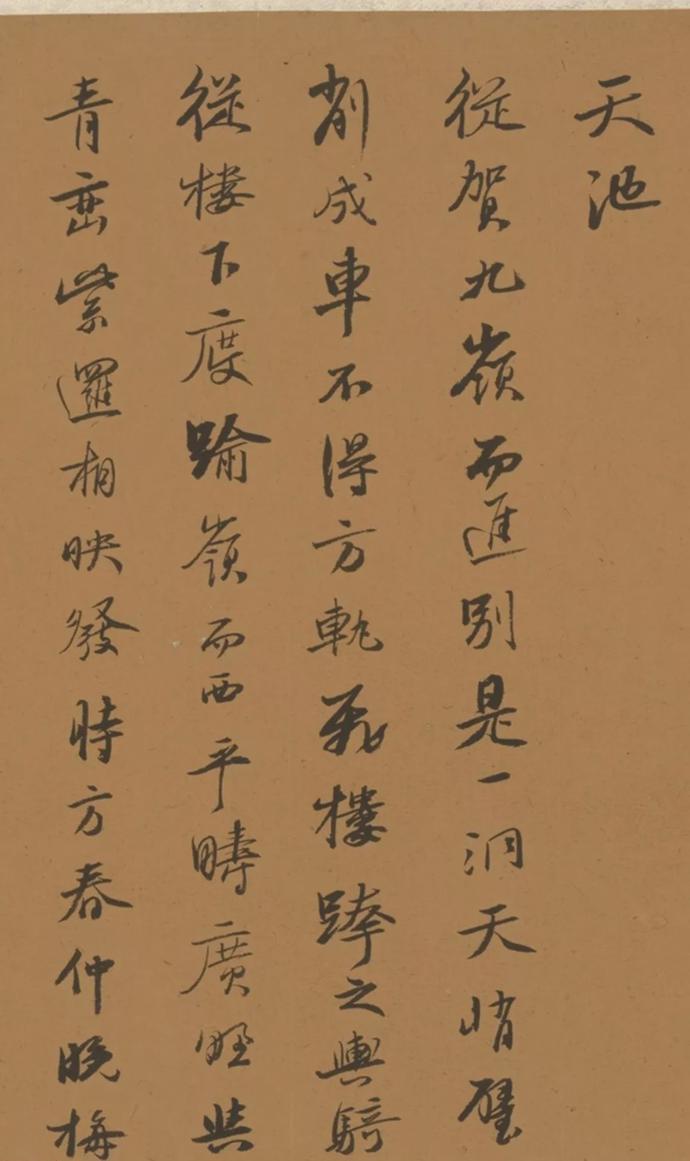 天池
從賀九嶺而進別是一洞天峭壁
削成車不得方軌飛樓跨之輿騎
從樓下度踰嶺而西平疇廣野與
青巒紫邏相映發時方春仲晚梅